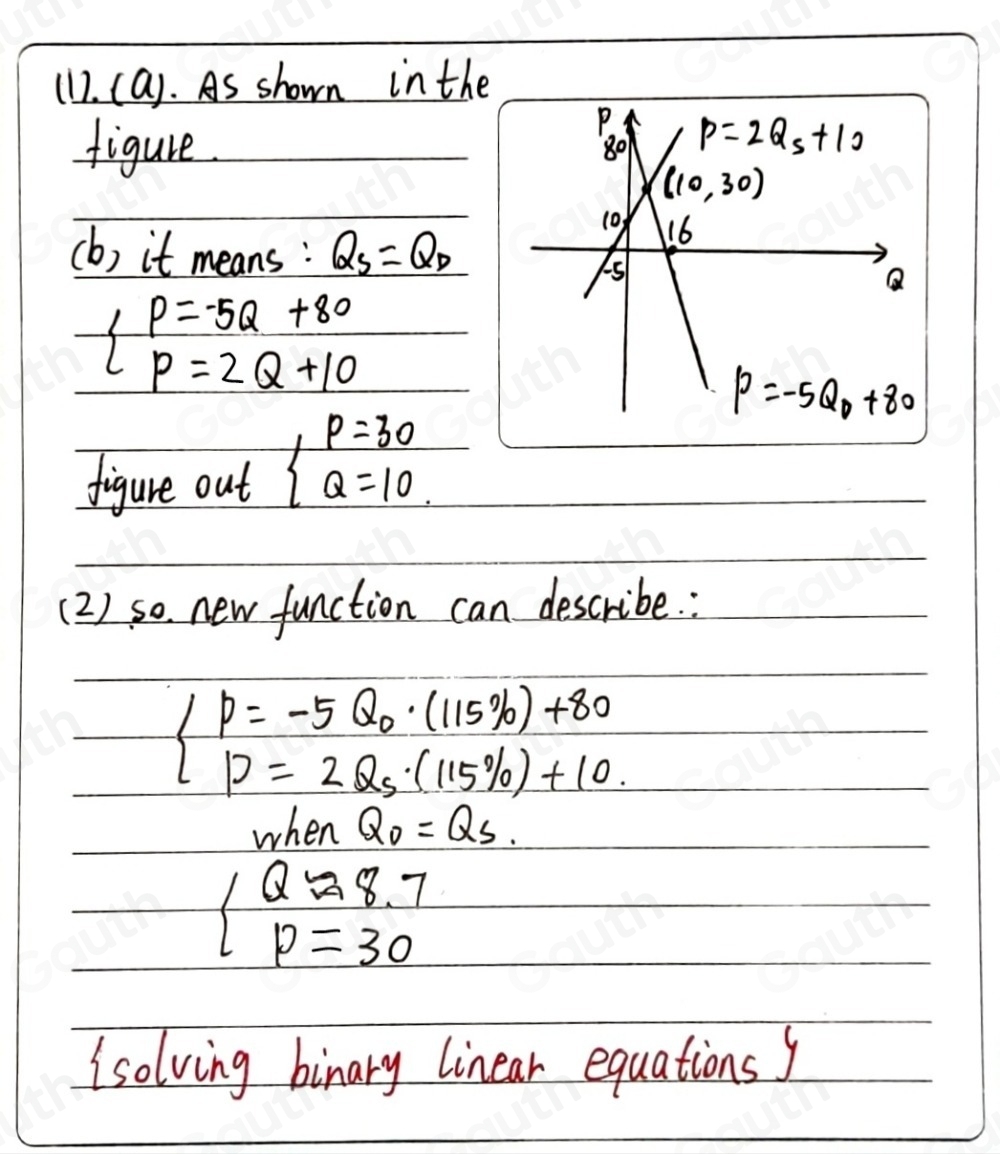 (1). (a). As shown in the
figure.
(b) it means : Qs = QD
P = -5Q + 80
P = 2Q + 10
figure out
P = 30
Q = 10.
P
80
P = 2Qs + 10
(10, 30)
10
16
-5
Q
P = -5QD + 80
(2) so. new function can describe.:
P = -5 QD · (115%) + 80
P = 2 Qs · (115%) + 10.
when QD = Qs.
Q ≈ 8.7
P = 30
{solving binary linear equations}
Gauth